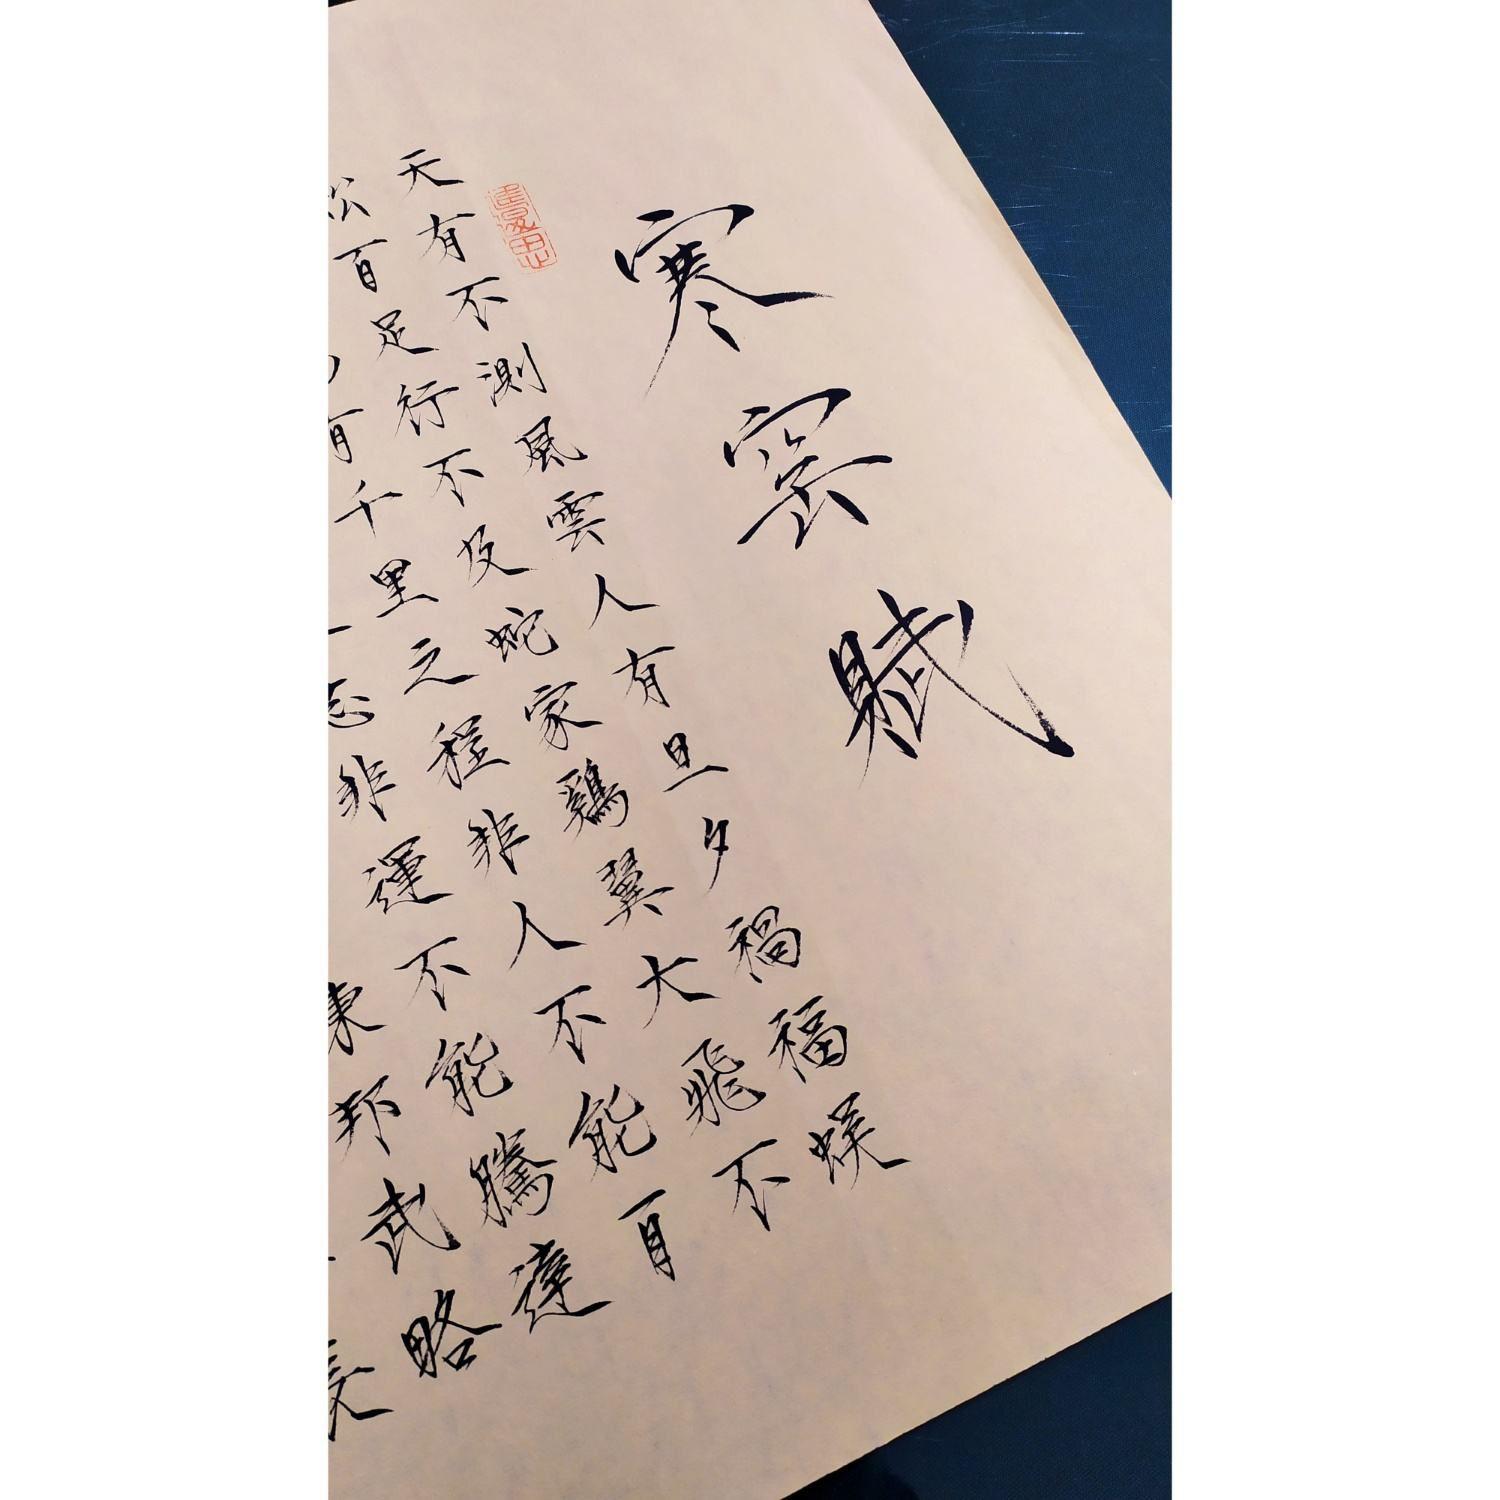 寒窑賦
天有不測風雲人有旦夕禍福蜈
蚣百足行不及蛇家鷄翼大飛不
有千里之程非人不能自
志非運不能騰達
邦武略